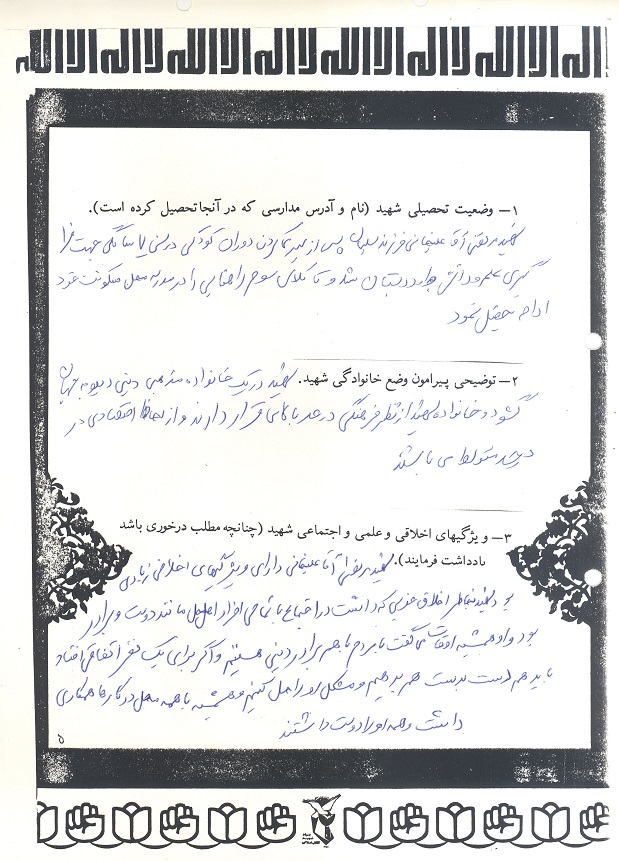 لااله الاالله لااله الاالله لااله الاالله
۱— وضعیت تحصیلی شهید (نام و آدرس مدارسی که در آنجا تحصیل کرده است).
شهید مرتضی آقا علیخانی فرزند سلمان پس از سپری کردن دوران کودکی در سن ۷ سالگی جهت فرا
گیری علم و دانش وارد دبستان شد و تا کلاس سوم راهنمایی را در مدرسه محل سکونت خود
ادامه تحصیل نمود
۲— توضیحی پیرامون وضع خانوادگی شهید. شهید در یک خانواده مذهبی دینی دیده به جهان
گشود و خانواده شهید از نظر فرهنگی در حد بالای قرار دارند و از لحاظ اقتصادی در
درصد متوسط می باشند
۳— ویژگیهای اخلاقی و علمی و اجتماعی شهید (چنانچه مطلب درخوری باشد
یادداشت فرمایند). شهید مرتضی آقا علیخانی دارای ویژگیهای اخلاقی زیادی
بود شهید بخاطر اخلاق خوبی که داشت در اجتماع با تمامی افراد محل مانند دوست و برادر
بود و او همیشه اوقات می گفت ما مردم با هم برادر دینی هستیم و اگر برای یک نفر اتفاقی افتاد
باید همه دست بدست هم بدهیم و مشکل او را حل کنیم و همیشه با همه محل در کارها همکاری
داشت و همه او را دوست داشتند
۵